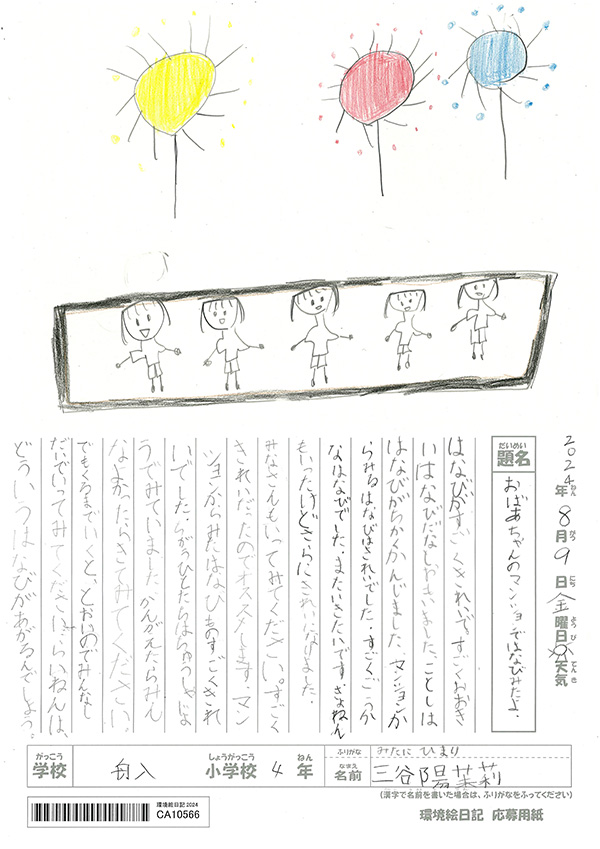 2024年ねん8月がつ9日にち金曜日ようび天気てんき
だいめい
題名
おばあちゃんのマンションではなびみたよ。
はなびがすごくきれいで、すごくおおき
いはなびだなとおもいました、ことしは
はなびがちかくかんじました、マンションか
らみるはなびはきれいでした。すごくごうか
なはなびでした。またいきたいです。きょねん
もいったけどさらにきれいになりました。
みなさんもいってみてください。すごく
きれいだったのでオススメします、マン
ションからみたはなびものすごくきれ
いでした。らがうひとたちはちゅうしゃじょ
うでみていました かんがえたらみん
なよかったらきてみてください。
でもくるまでいくと、とおいのでみんなし
だいでいってみてください…らいねんは、
どういうはなびがあがるんでしょう。
がっこう
学校
舟入
しょうがっこう
小学校
4
ねん
年
ふりがな
みたに ひまり
なまえ
名前
三谷陽茉莉
(漢字で名前を書いた場合は、ふりがなをふってください)
環境絵日記2024
CA10566
環境絵日記 応募用紙